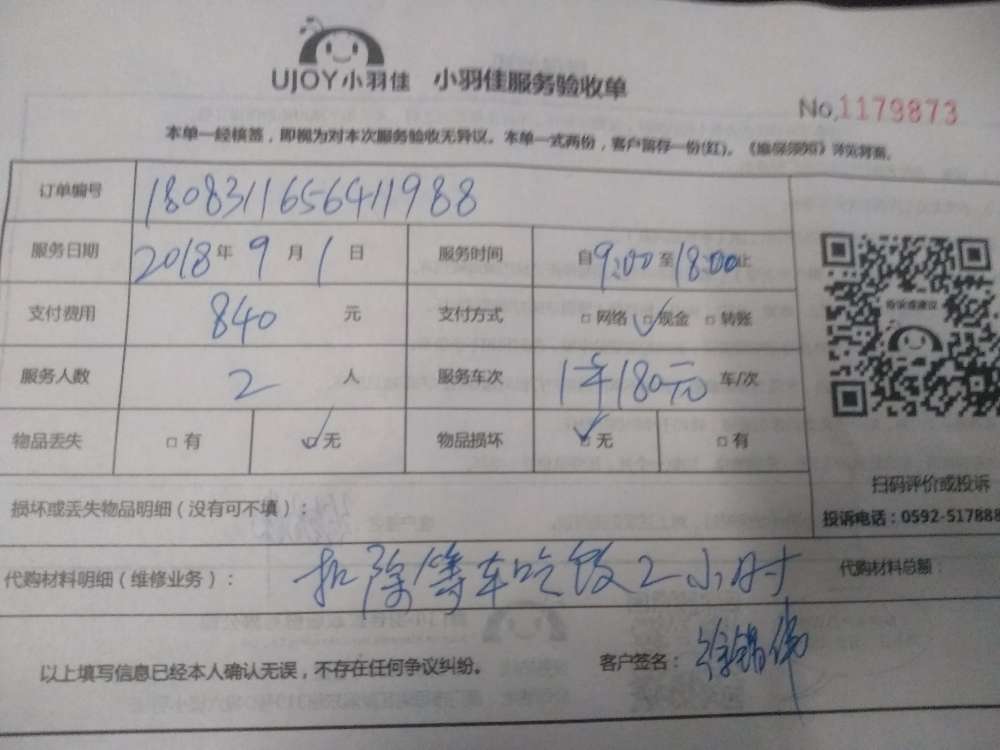 UJOY小羽佳 小羽佳服务验收单
No.1179873
本单一经核签，即视为对本次服务验收无异议。本单一式两份，客户留存一份(红)。
订单编号 180831165641988
服务日期 2018年9月1日 服务时间 自9:00至18:00止
支付费用 840 元 支付方式 □网络 ☑现金 □转账
服务人数 2 人 服务车次 1车180元 车/次
物品丢失 □有 ☑无 物品损坏 ☑无 □有
投诉或建议
扫码评价或投诉
损坏或丢失物品明细（没有可不填）：
投诉电话：0592-517888
代购材料明细（维修业务）： 扣除等车吃饭2小时 代购材料总额：
以上填写信息已经本人确认无误，不存在任何争议纠纷。 客户签名：